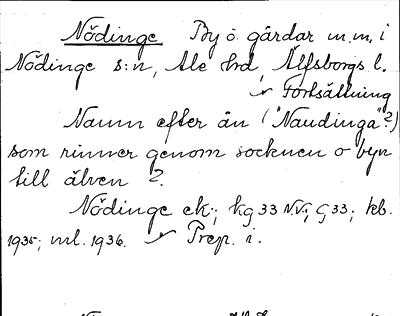 Nödinge By o. gårdar m.m. i
Nödinge s:n, Ale hrd, Älfsborgs l.
Fortsättning
Namn efter ån ("Naudinga"?)
som rinner genom socknen o byn
till älven?
Nödinge ek.; kg 33 NV; G 33; kb.
1935; ml. 1936. Prep. i.